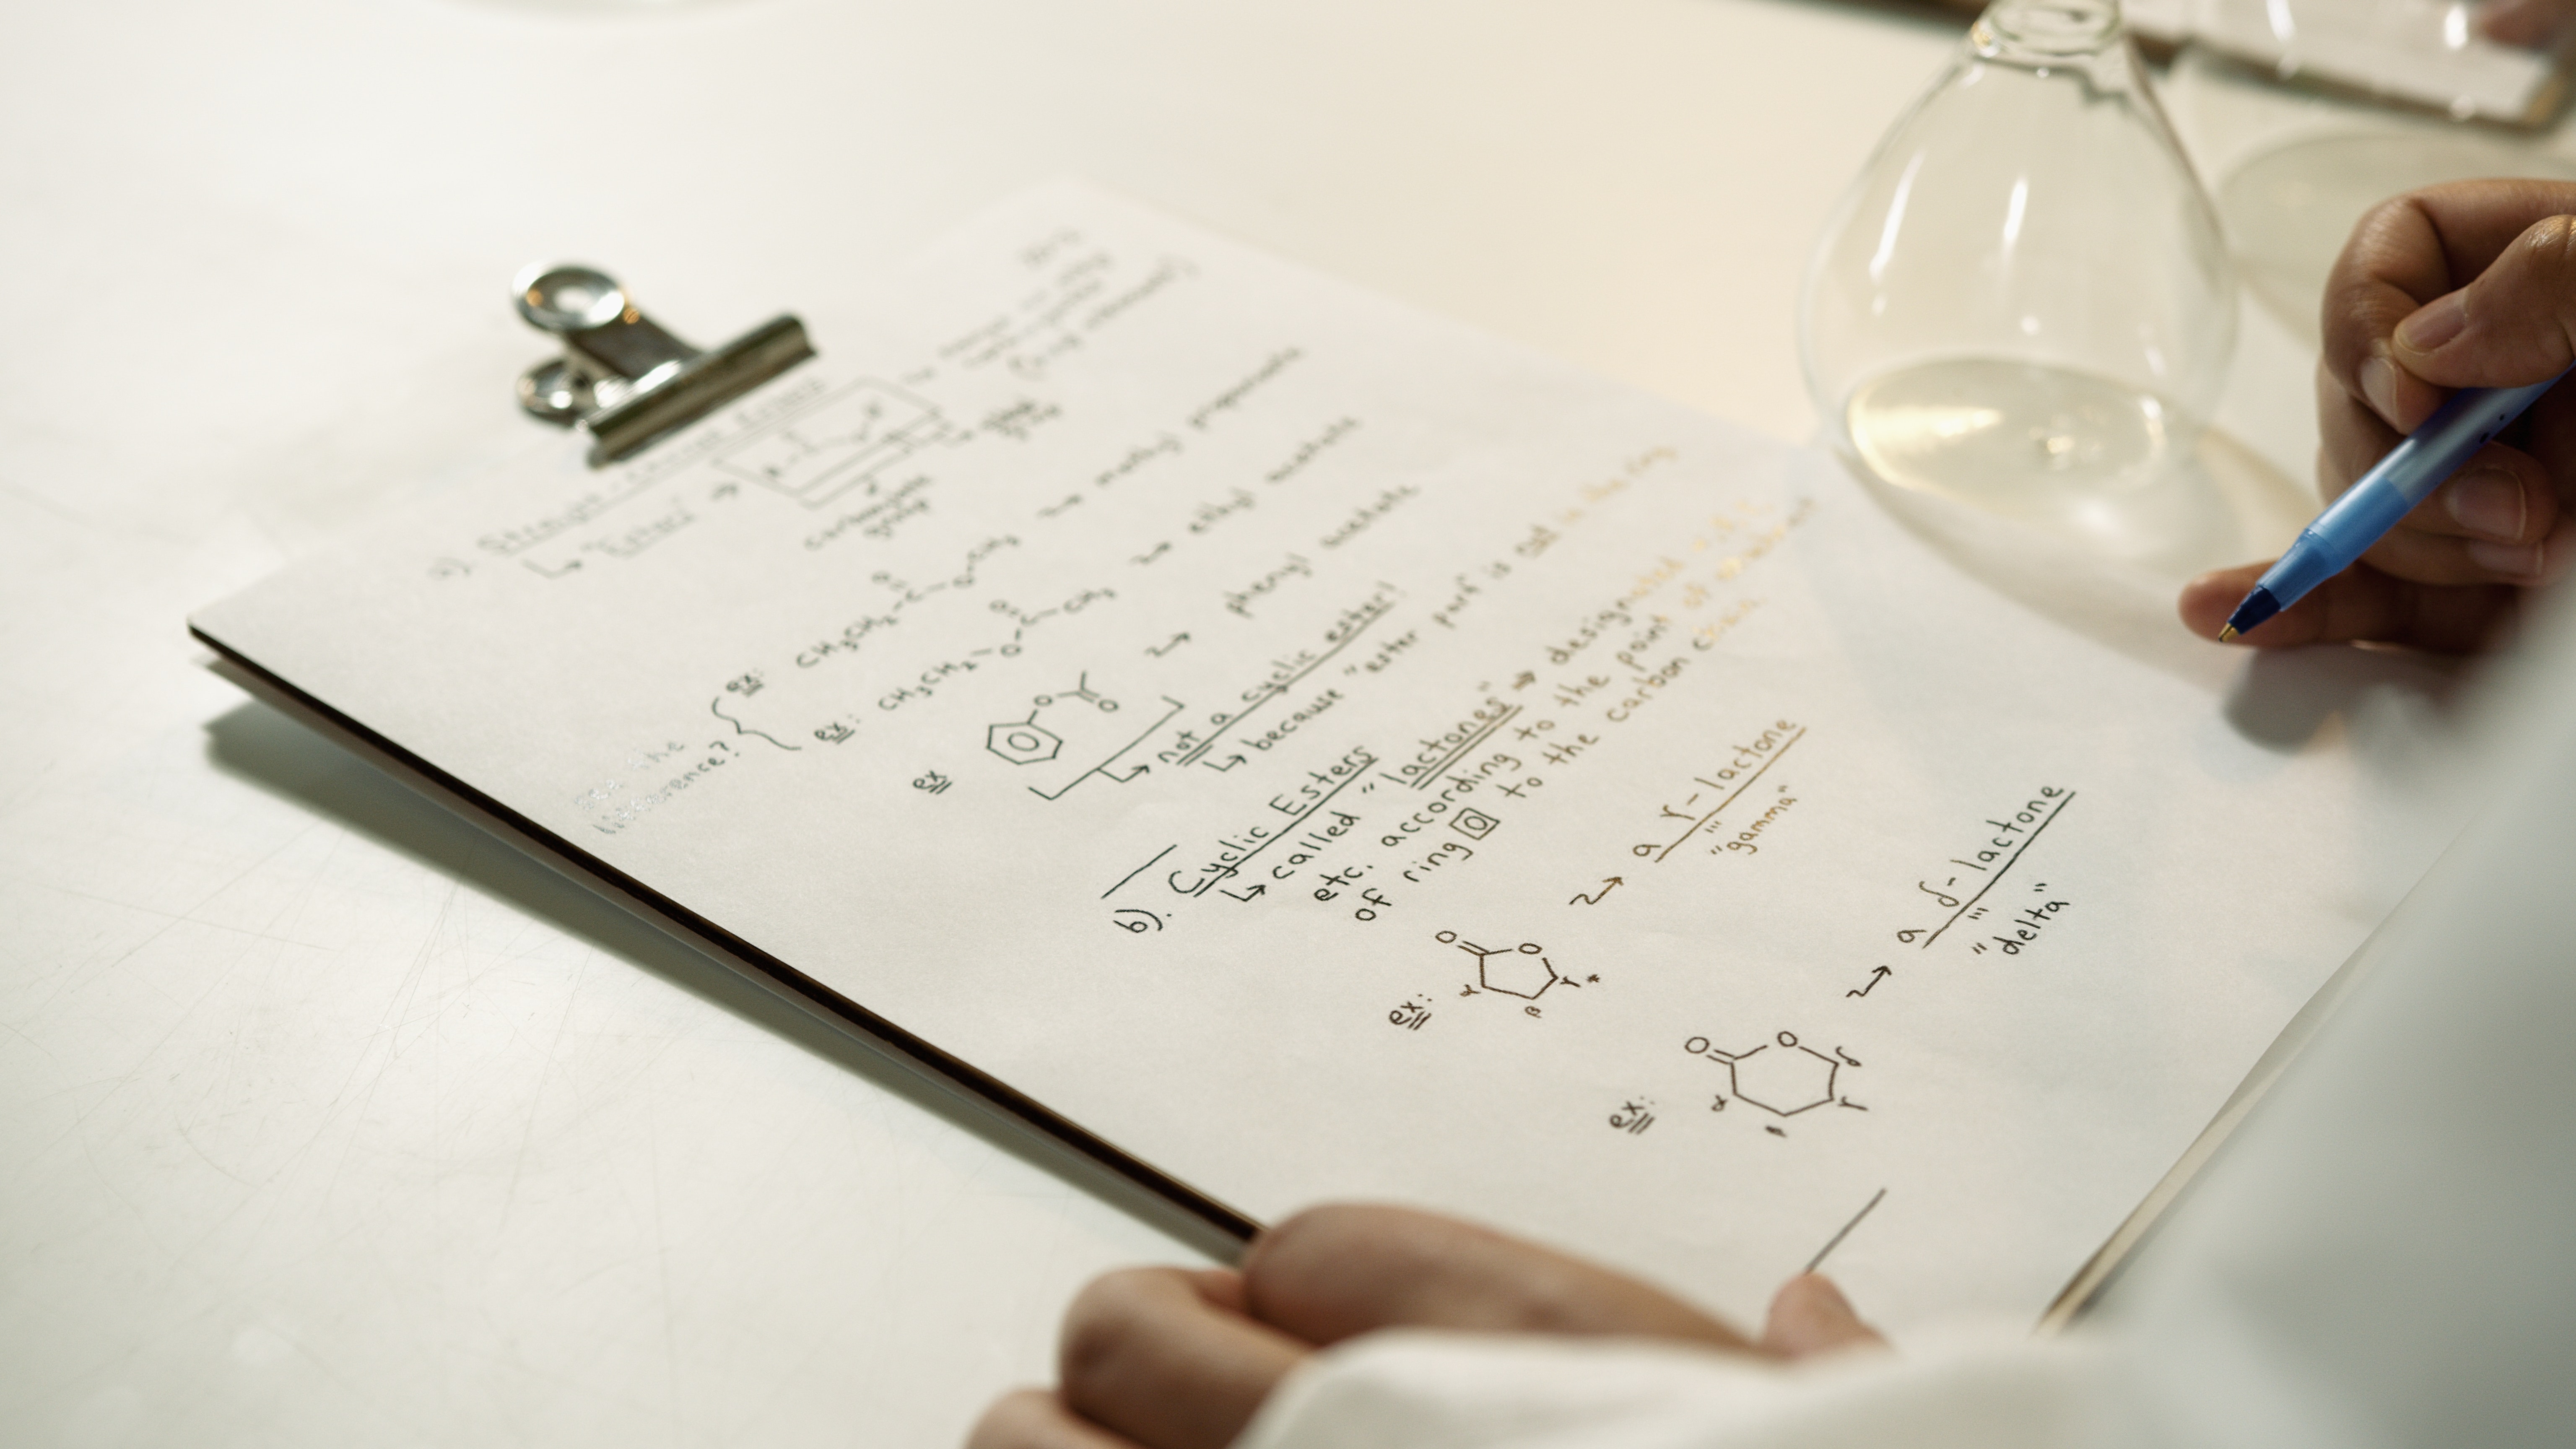 a). Straight-chain Esters
↳ "Esters" →
carboxylate
group
see the
difference?
ex: CH3CH2-C-O-CH3 → methyl propanoate
O
ex: CH3CH2-O-C-CH3 → ethyl acetate
O
ex → phenyl acetate
O
O
↳ not a cyclic ester!
↳ because "ester part" is not in the ring
b). Cyclic Esters
↳ called "lactones" ⇒ designated
etc. according to the point of attachment
of ring O to the carbon chain.
ex: → a γ-lactone
"gamma"
O O α β γ *
ex: → a δ-lactone
"delta"
O O α β γ δ